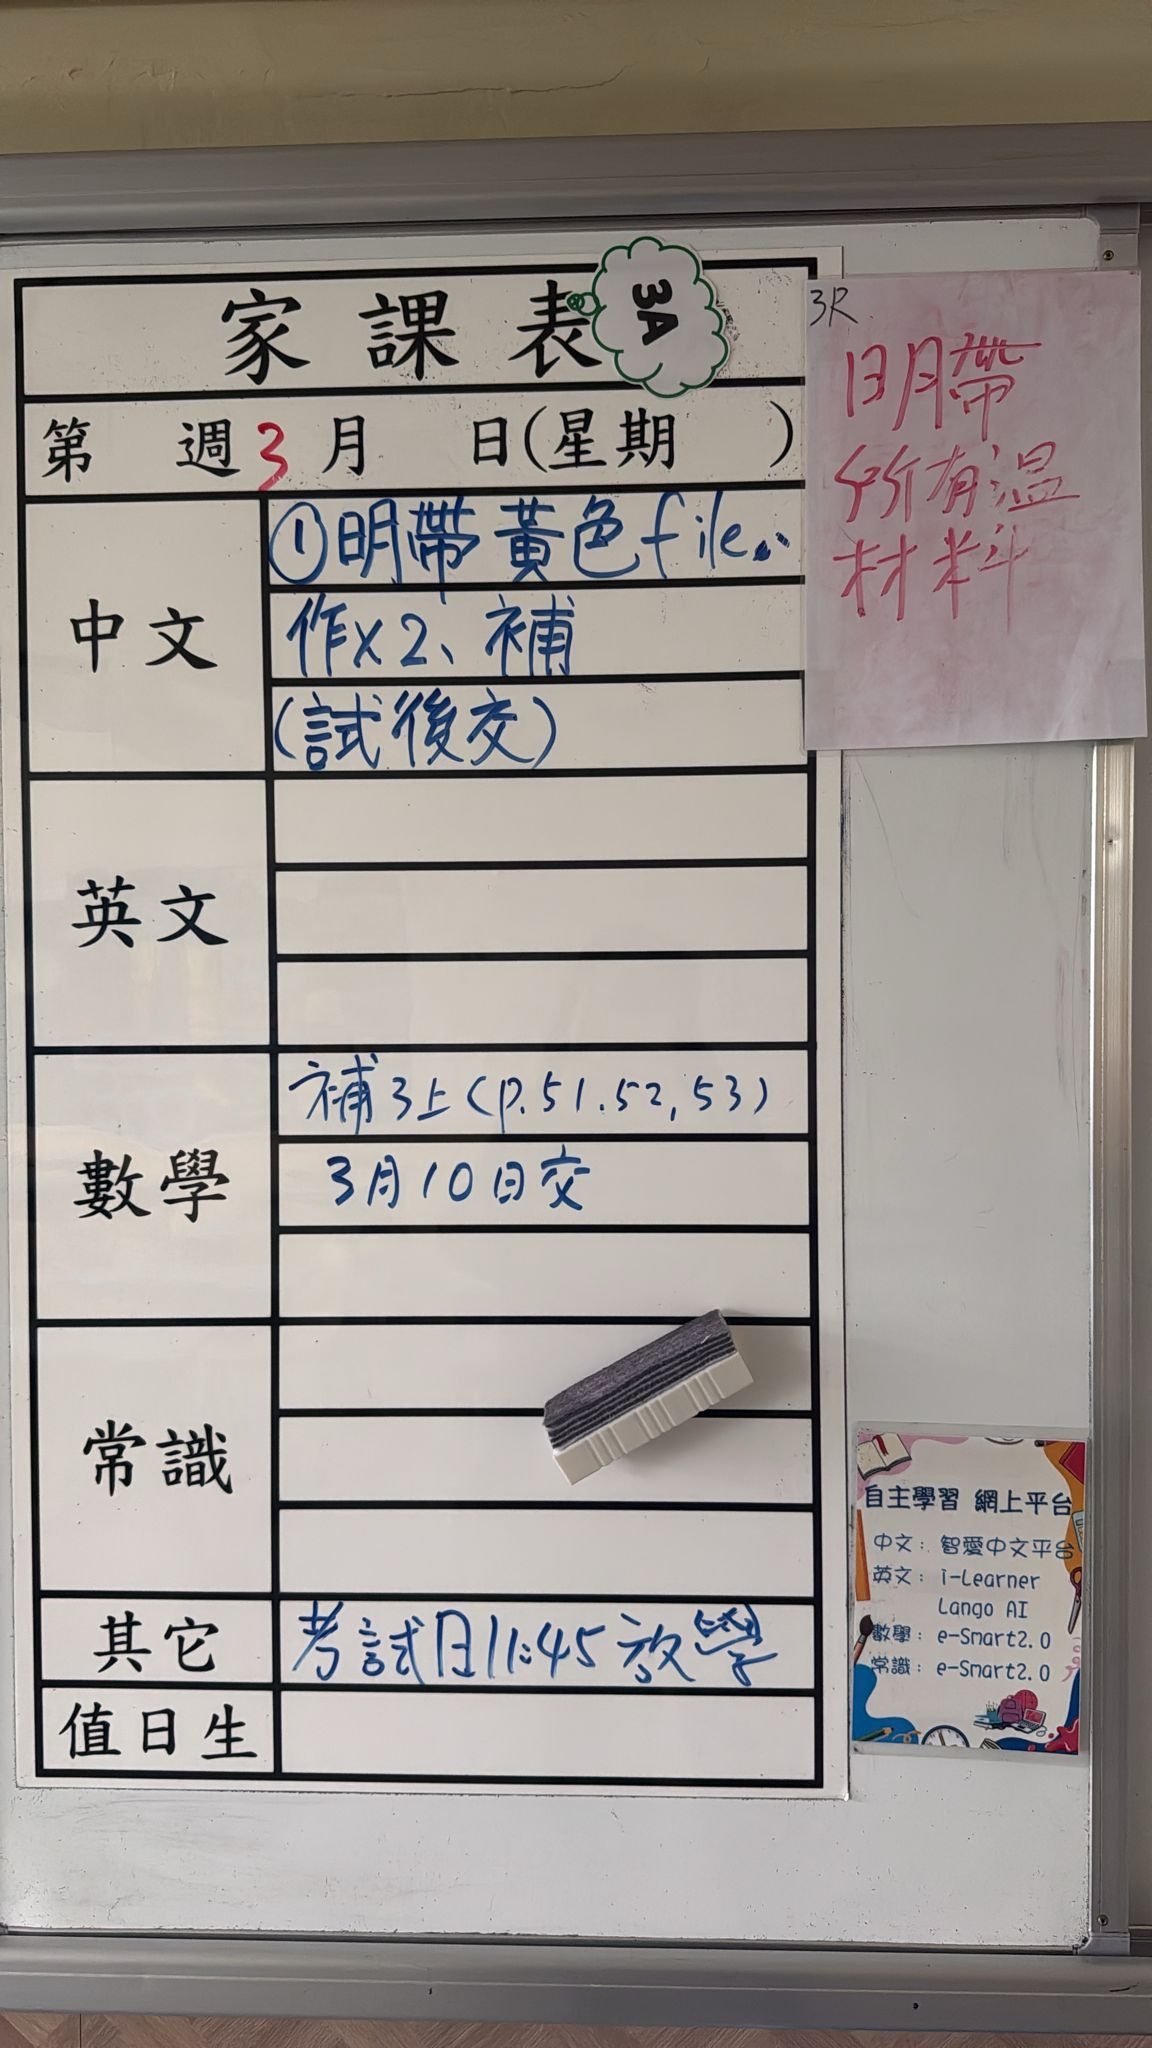 家課表
3A
第 週3月 日(星期 )
中文
①明帶黃色file、
作x2、補
(試後交)
英文
數學
補3上(p.51.52,53)
3月10日交
常識
其它
考試日11:45放學
值日生
3R
明帶
所有溫
材料
自主學習 網上平台
中文: 智愛中文平台
英文: i-Learner
Lango AI
數學: e-Smart2.0
常識: e-Smart2.0